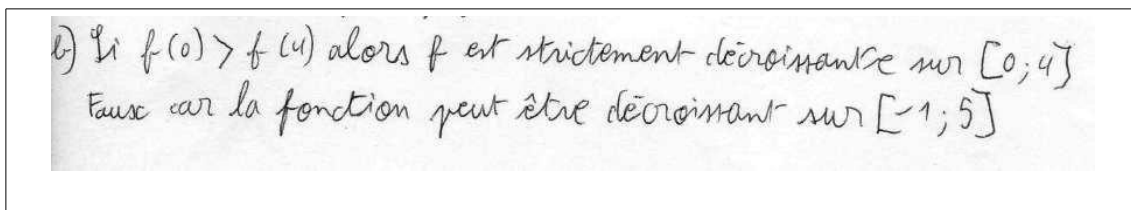 b) Si f(0) > f(4) alors f est strictement décroissante sur [0;4]
Faux car la fonction peut être décroissant sur [-1;5]